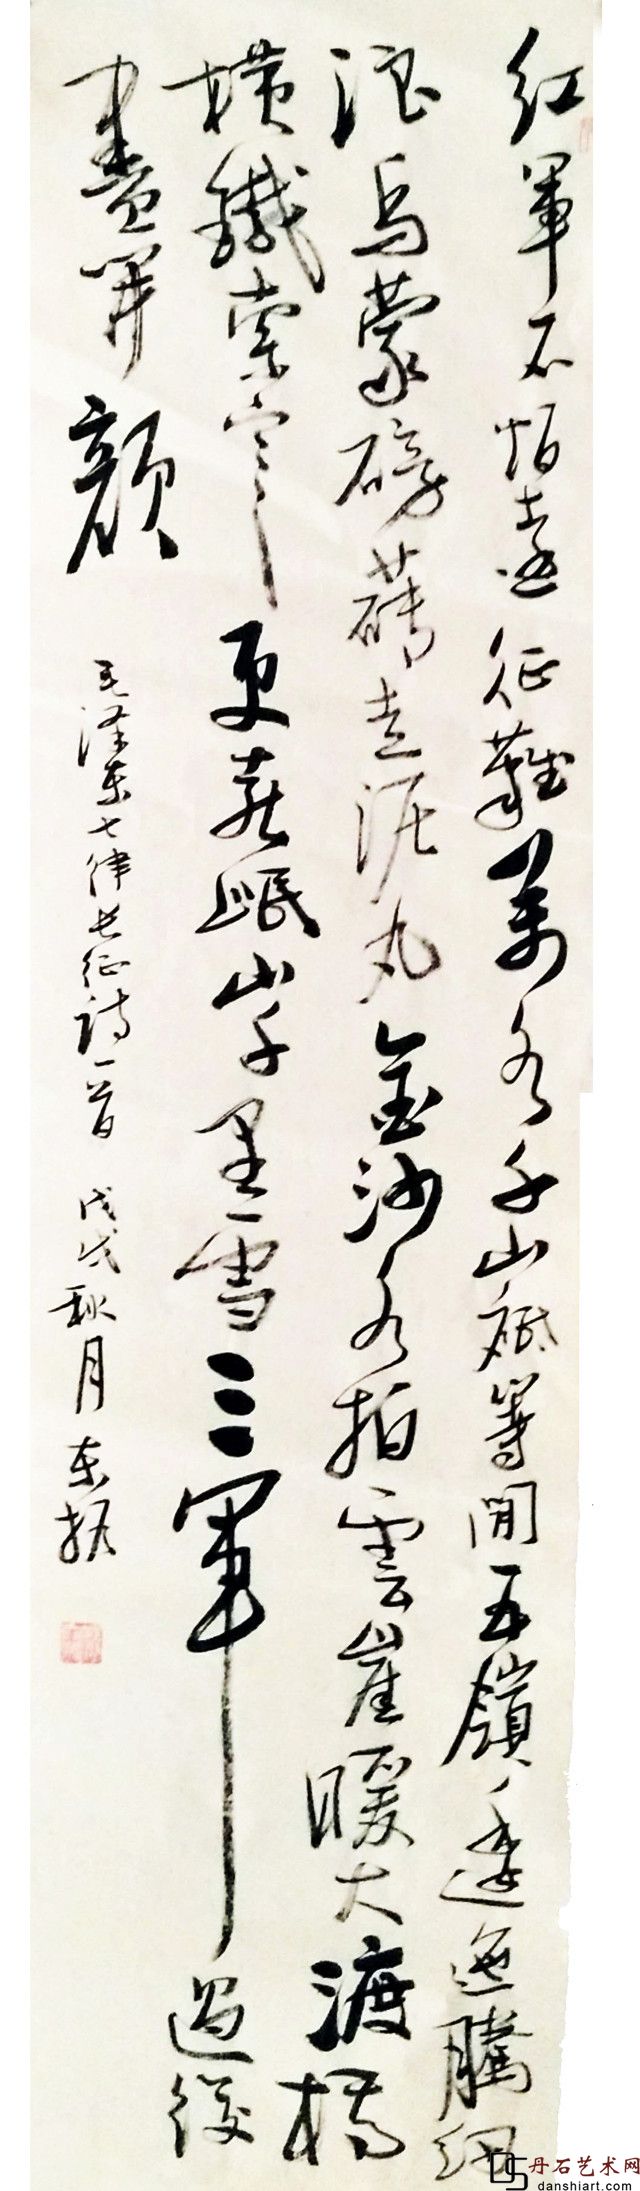 红軍不怕遠征難萬水千山祗等閒五嶺逶迤騰细
浪烏蒙磅礴走泥丸金沙水拍雲崖暖大渡橋
横鐵索寒更喜岷山千里雪三軍過後
盡開顔
毛泽东七律长征诗一首 戊戌秋月 东
丹石艺术网
danshiart.com